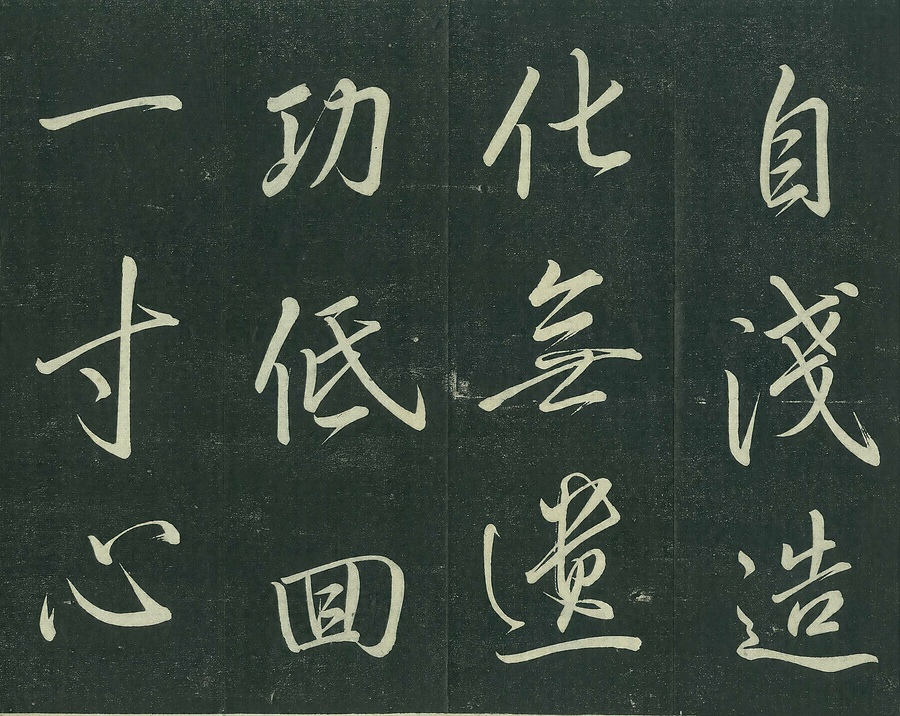 自淺造
化無遺
功低回
一寸心